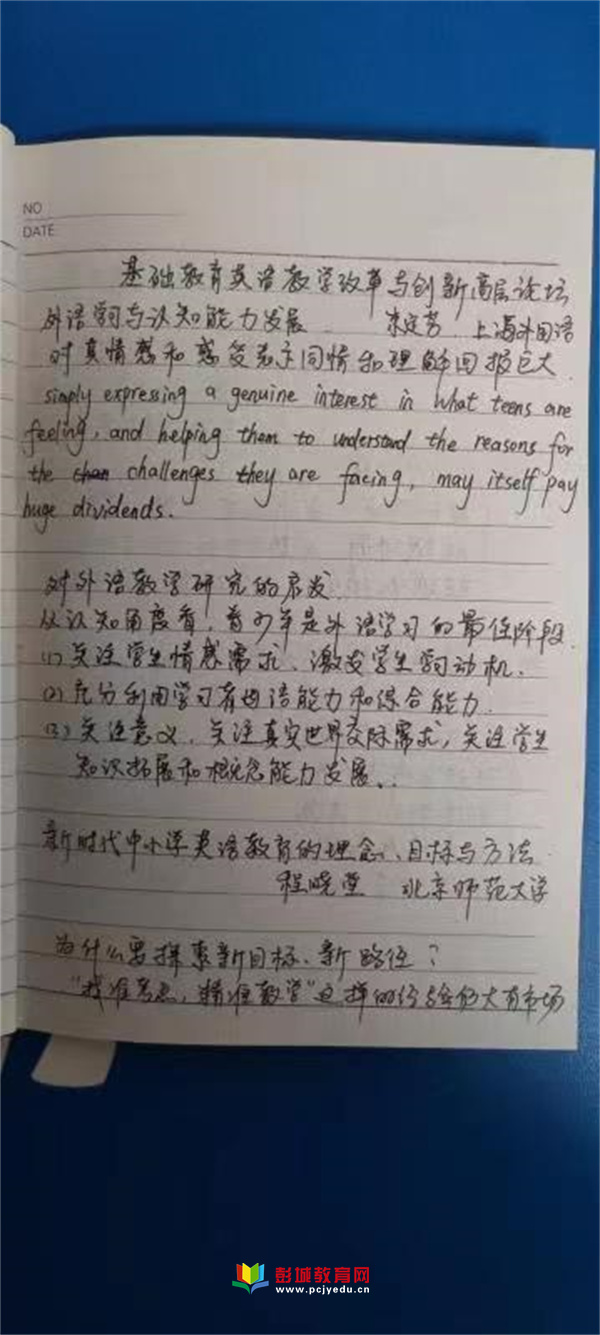 NO
DATE
基础教育英语教学改革与创新高层论坛
外语学习与认知能力发展 束定芳 上海外国语
对真情感和感受表示同情和理解回报巨大
simply expressing a genuine interest in what teens are
feeling, and helping them to understand the reasons for
the challenges they are facing, may itself pay
huge dividends.
对外语教学研究的启发
从认知角度看，青少年是外语学习的最佳阶段
(1) 关注学生情感需求、激发学生学习动机.
(2) 充分利用学习者母语能力和综合能力.
(3) 关注意义，关注真实世界交际需求，关注学生
知识拓展和概念能力发展..
新时代中小学英语教育的理念、目标与方法
程晓堂 北京师范大学
为什么要探索新目标、新路径？
"找准考点，精准教学"这样的经验仍大有市场
彭城教育网
www.pcjyedu.cn